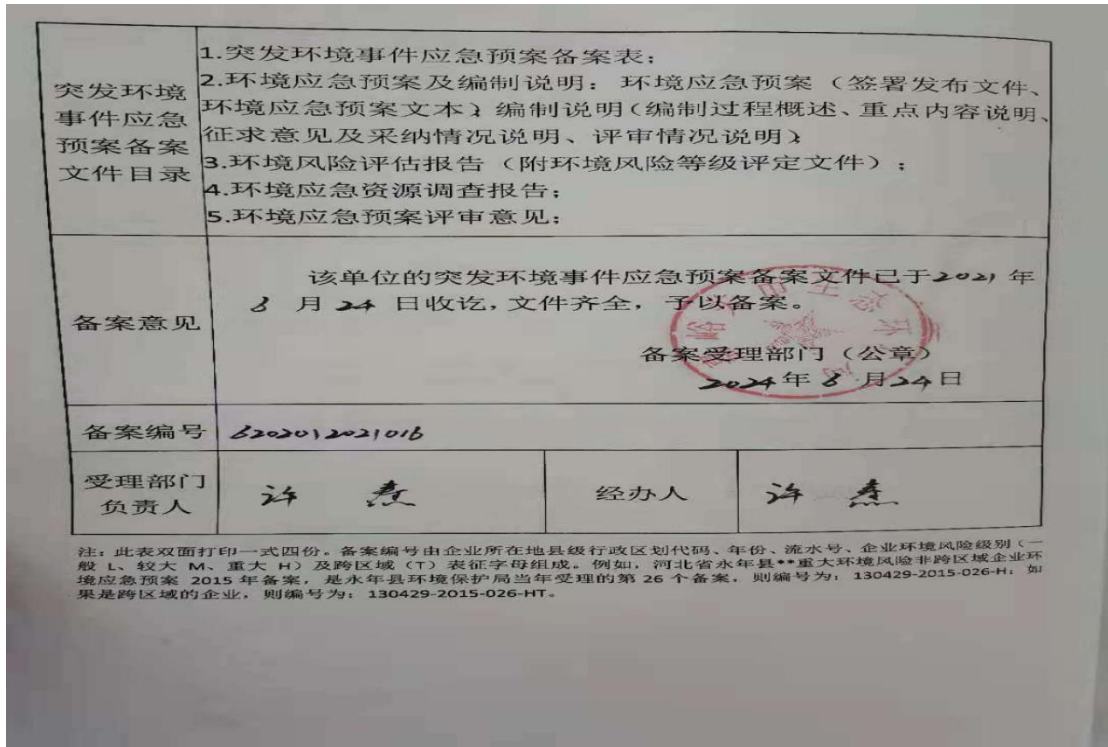 突发环境
事件应急
预案备案
文件目录
1.突发环境事件应急预案备案表;
2.环境应急预案及编制说明: 环境应急预案 (签署发布文件、
环境应急预案文本); 编制说明(编制过程概述、重点内容说明、
征求意见及采纳情况说明、评审情况说明);
3.环境风险评估报告 (附环境风险等级评定文件) ;
4.环境应急资源调查报告;
5.环境应急预案评审意见;
备案意见
该单位的突发环境事件应急预案备案文件已于2021 年
8 月 24 日收讫, 文件齐全, 予以备案。
备案受理部门 (公章)
2024年 8 月24日
备案编号
6202012021016
受理部门
负责人
许
经办人
许
注: 此表双面打印一式四份。备案编号由企业所在地县级行政区划代码、年份、流水号、企业环境风险级别 (一
般 L、较大 M、重大 H) 及跨区域 (T) 表征字母组成。例如, 河北省永年县**重大环境风险非跨区域企业环
境应急预案 2015 年备案, 是永年县环境保护局当年受理的第 26 个备案, 则编号为: 130429-2015-026-H; 如
果是跨区域的企业, 则编号为: 130429-2015-026-HT。